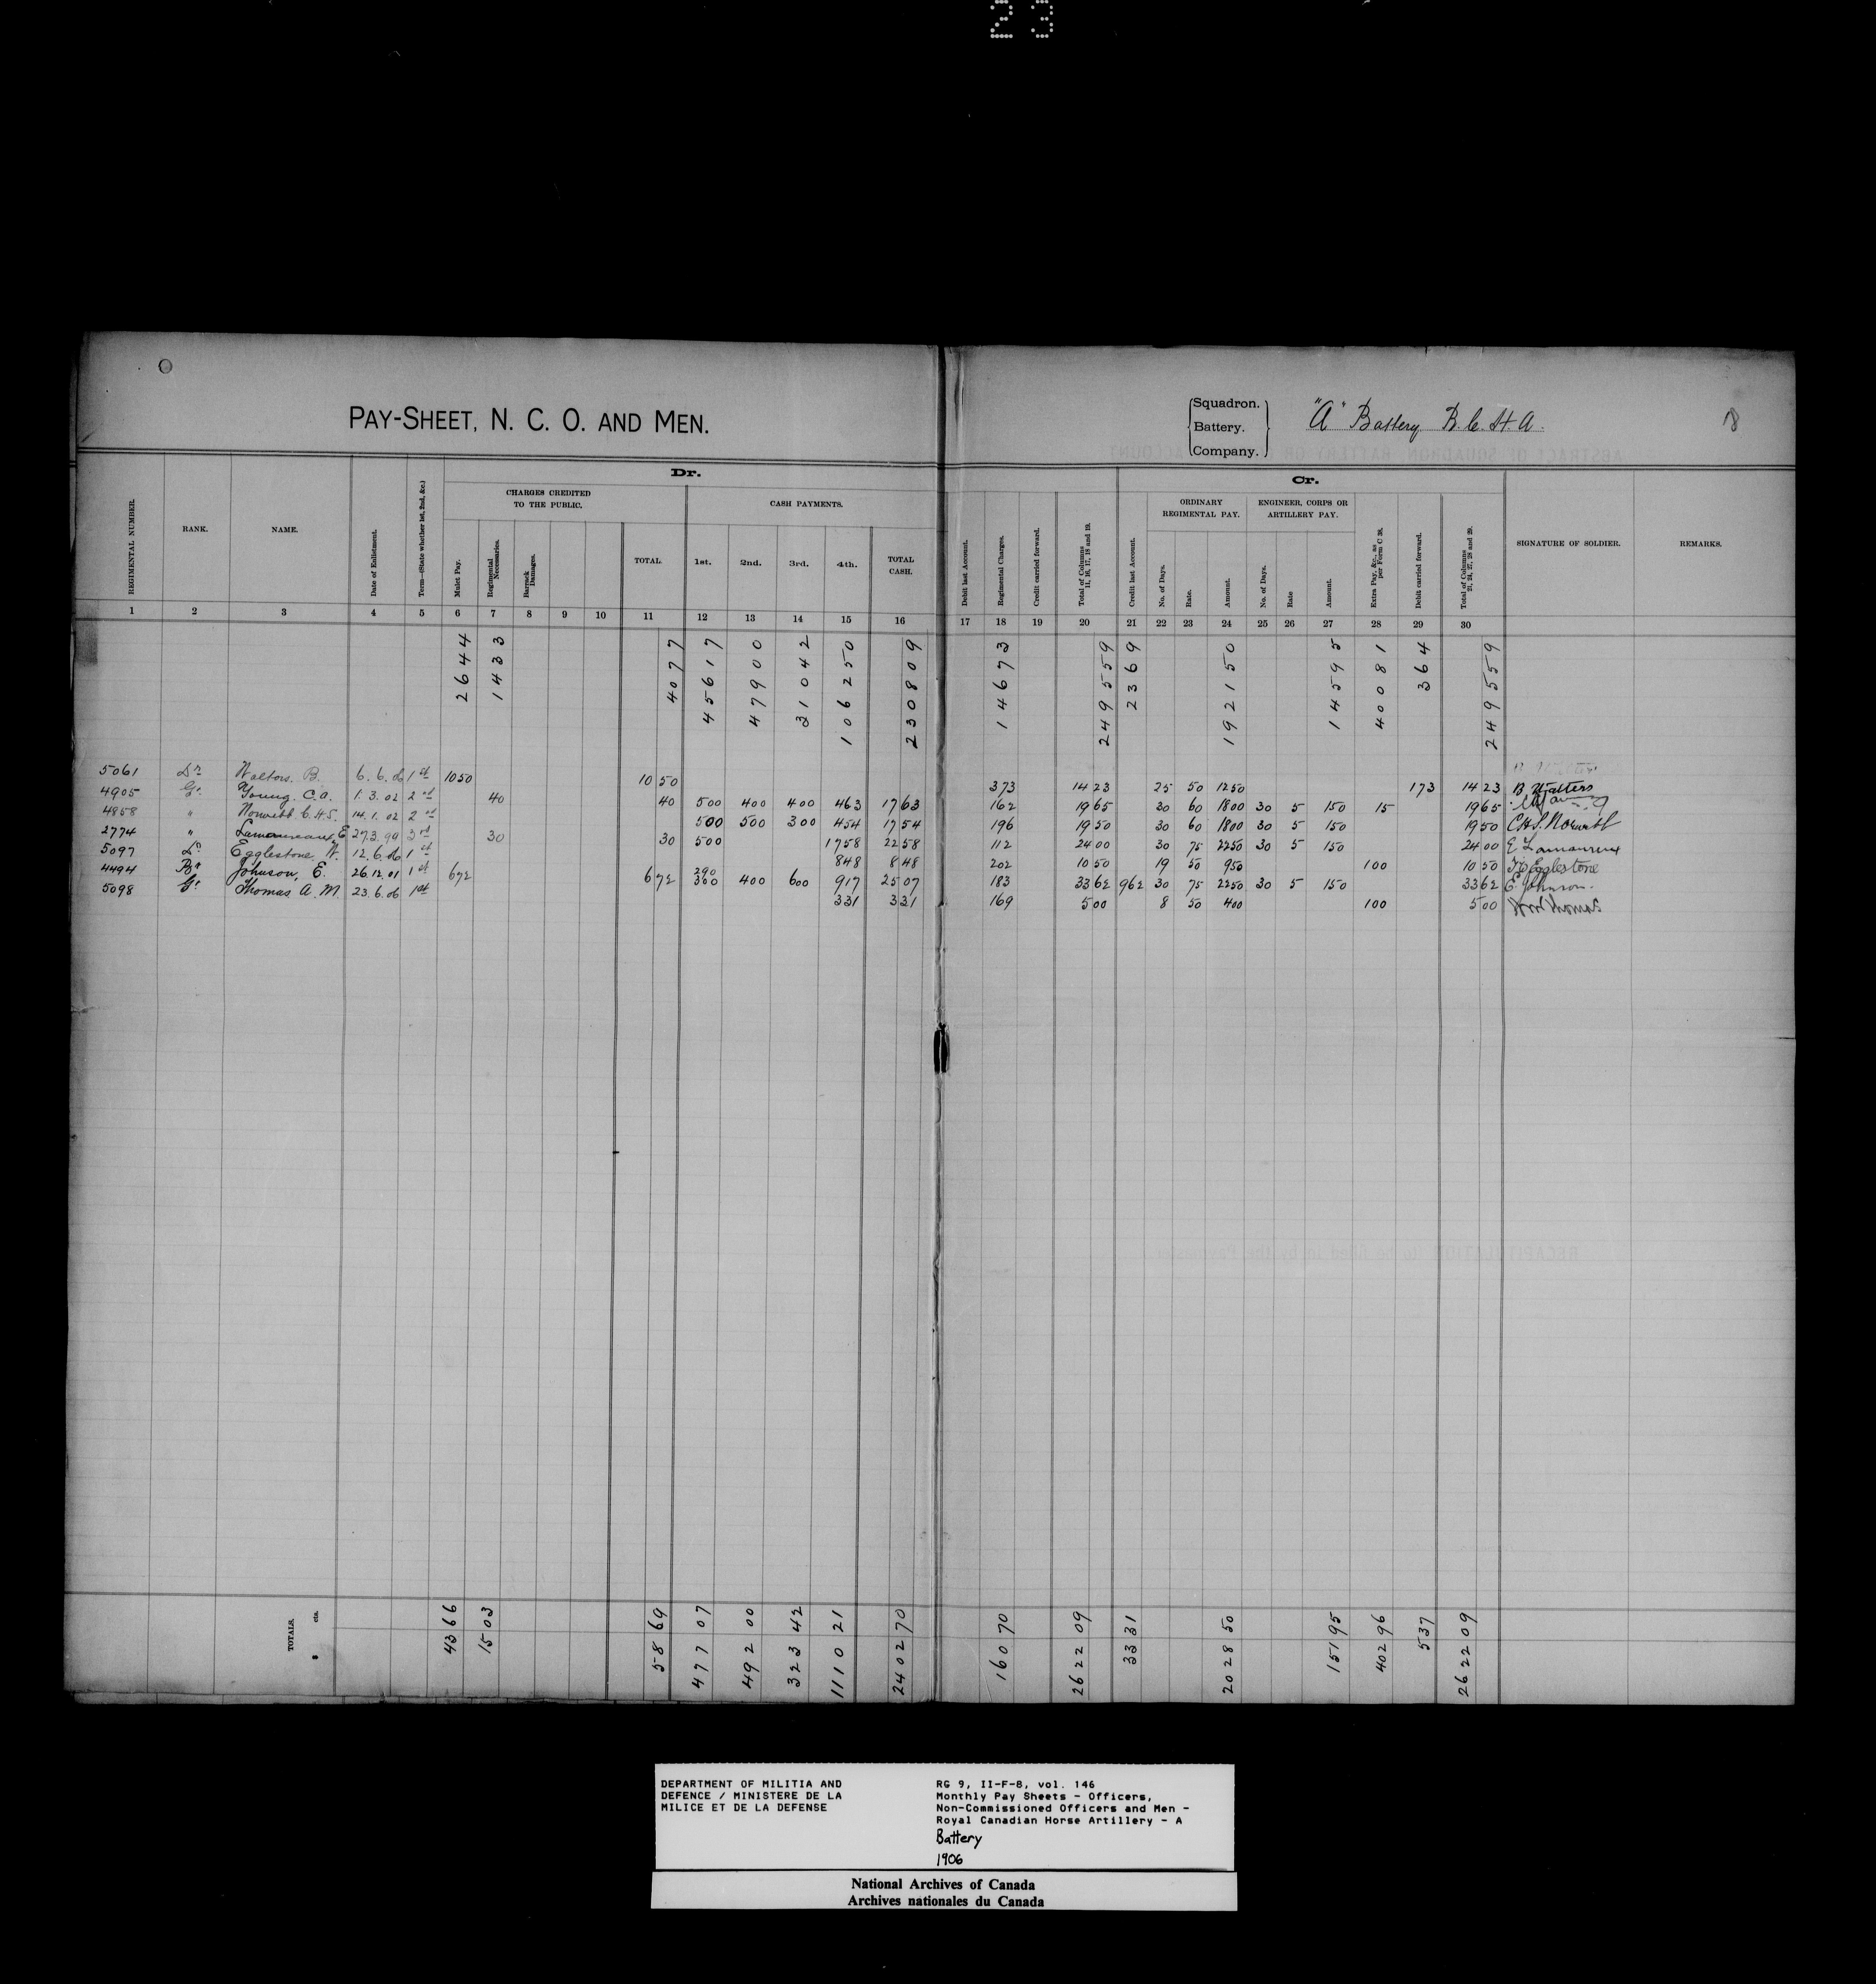 23
PAY-SHEET, N. C. O. AND MEN.
Squadron.
Battery.
Company.
"A" Battery R.C.H.A.
18
Dr.
Cr.
CHARGES CREDITED TO THE PUBLIC.
CASH PAYMENTS.
ORDINARY REGIMENTAL PAY.
ENGINEER, CORPS OR ARTILLERY PAY.
REGIMENTAL NUMBER. RANK. NAME. Date of Enlistment. Term—(State whether 1st, 2nd, &c.) Mulct Pay. Regimental Necessaries. Barrack Damages. TOTAL. 1st. 2nd. 3rd. 4th. TOTAL CASH. Debit last Account. Regimental Charges. Credit carried forward. Total of Columns 11, 16, 17, 18 and 19. Credit last Account. No. of Days. Rate. Amount. No. of Days. Rate Amount. Extra Pay, &c., as per Form C 38. Debit carried forward. Total of Columns 21, 24, 27, 28 and 29. SIGNATURE OF SOLDIER. REMARKS.
1 2 3 4 5 6 7 8 9 10 11 12 13 14 15 16 17 18 19 20 21 22 23 24 25 26 27 28 29 30
2644 1433 4077 45617 47900 31042 106250 230809 14673 249559 2369 192150 14595 40081 364 249559
5061 Dr Walters. B. 6.6.06 1st 1050 1050 373 1423 25 50 1250 173 1423 B Walters
4905 Gr. Young. C.A. 1.3.02 2nd 40 40 500 400 400 463 1763 162 1965 30 60 1800 30 5 150 15 1965
4858 " Norwebb C.H.S. 14.1.02 2nd 500 500 300 454 1754 196 1950 30 60 1800 30 5 150 1950 C.H.S. Norwebb
2774 " Lamoureaux, E 27.3.99 3rd 30 30 500 1758 2258 112 2400 30 75 2250 30 5 150 2400 E Lamoureux
5097 Dr Egglestone, W. 12.6.06 1st 848 848 202 1050 19 50 950 100 1050 Egglestone
4494 Br Johnson, E. 26.12.01 1st 672 672 290 300 400 600 917 2507 183 3362 962 30 75 2250 30 5 150 3362 E Johnson.
5098 Gr. Thomas A. M. 23.6.06 1st 331 331 169 500 8 50 400 100 500 Thomas
TOTALS. $ cts. 4366 1503 5869 47707 49200 32342 111021 240270 16070 262209 3331 202850 15195 40296 537 262209
DEPARTMENT OF MILITIA AND
DEFENCE / MINISTERE DE LA
MILICE ET DE LA DEFENSE
RG 9, II-F-8, vol. 146
Monthly Pay Sheets - Officers,
Non-Commissioned Officers and Men -
Royal Canadian Horse Artillery - A
Battery
1906
National Archives of Canada
Archives nationales du Canada